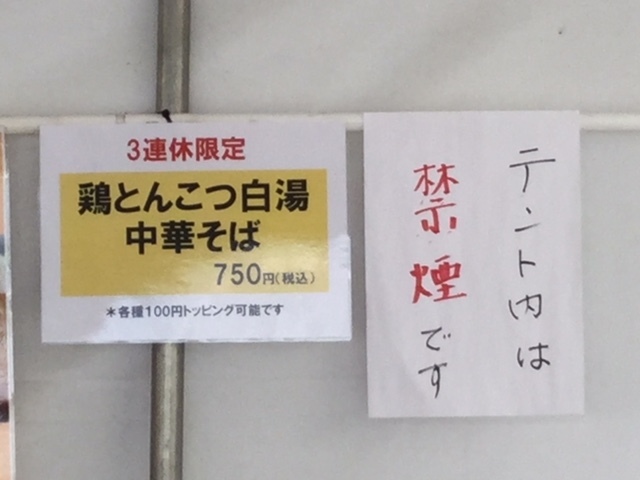 3連休限定
鶏とんこつ白湯
中華そば
750円(税込)
*各種100円トッピング可能です
テント内は
禁煙です